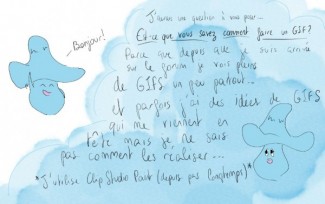 Bonjour!
J'aurai une question à vous poser...
Est-ce que vous savez comment faire un GIF?
Parce que depuis que je suis arrivé
sur le forum je vois pleins
de GIFS un peu partout...
et parfois j'ai des idées de GIFS
qui me viennent en
tête mais je ne sais
pas comment les réaliser...
*J'utilise Clip Studio Paint (depuis pas longtemps)*